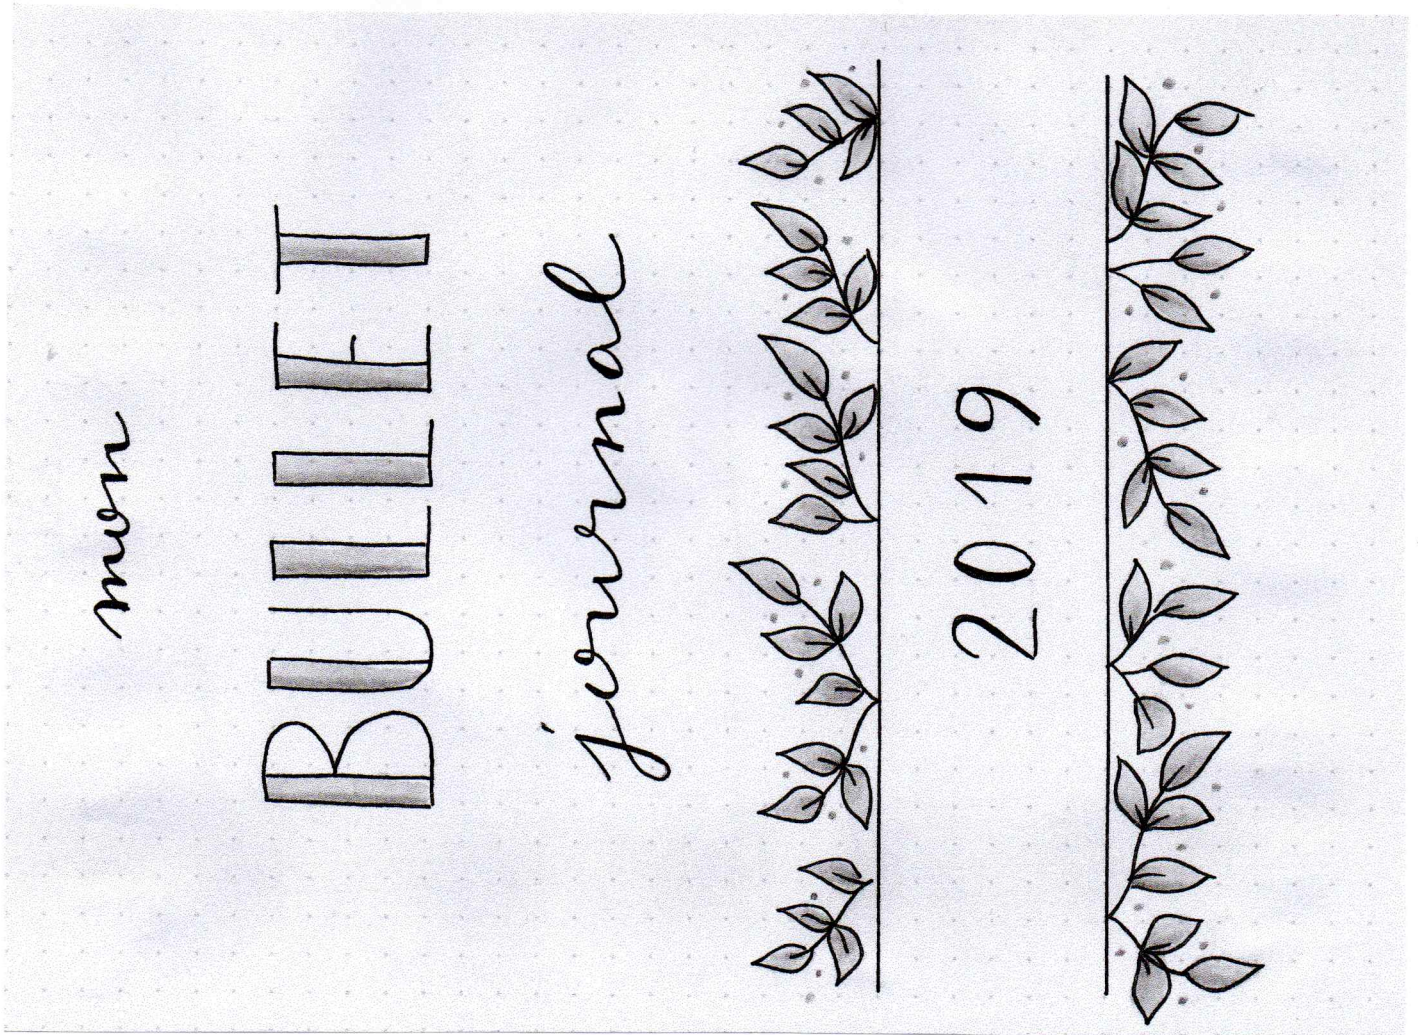 mon
BULLET
journal
2019